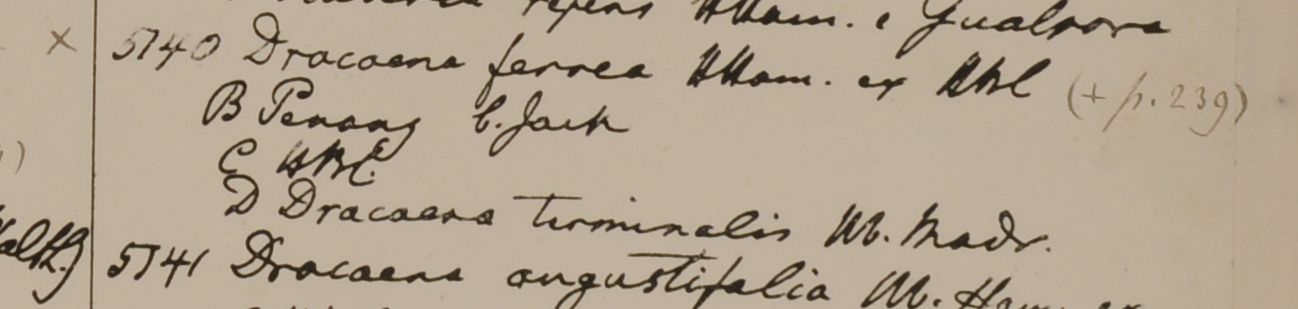 repens HHam. e Gualpara
x 5140 Dracaena ferrea HHam. ex HBC (+ p. 239)
B Penang C. Jack
C HBC.
D Dracaena terminalis M. Madr.
5141 Dracaena angustifolia M. Ham. ex